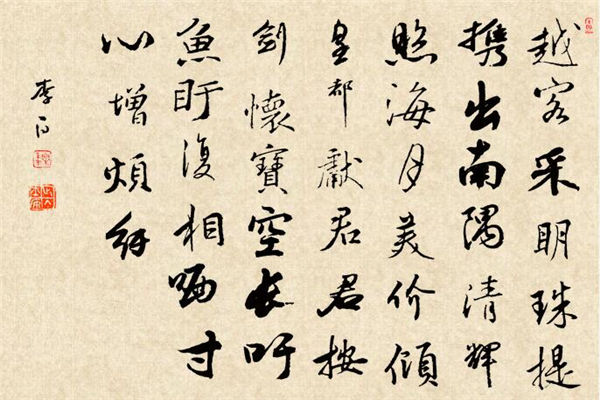 越客采明珠提
携出南隅清輝
照海月美价傾
皇都獻君君按
劍懷寶空長吁
魚盱復相哂寸
心增煩
李白